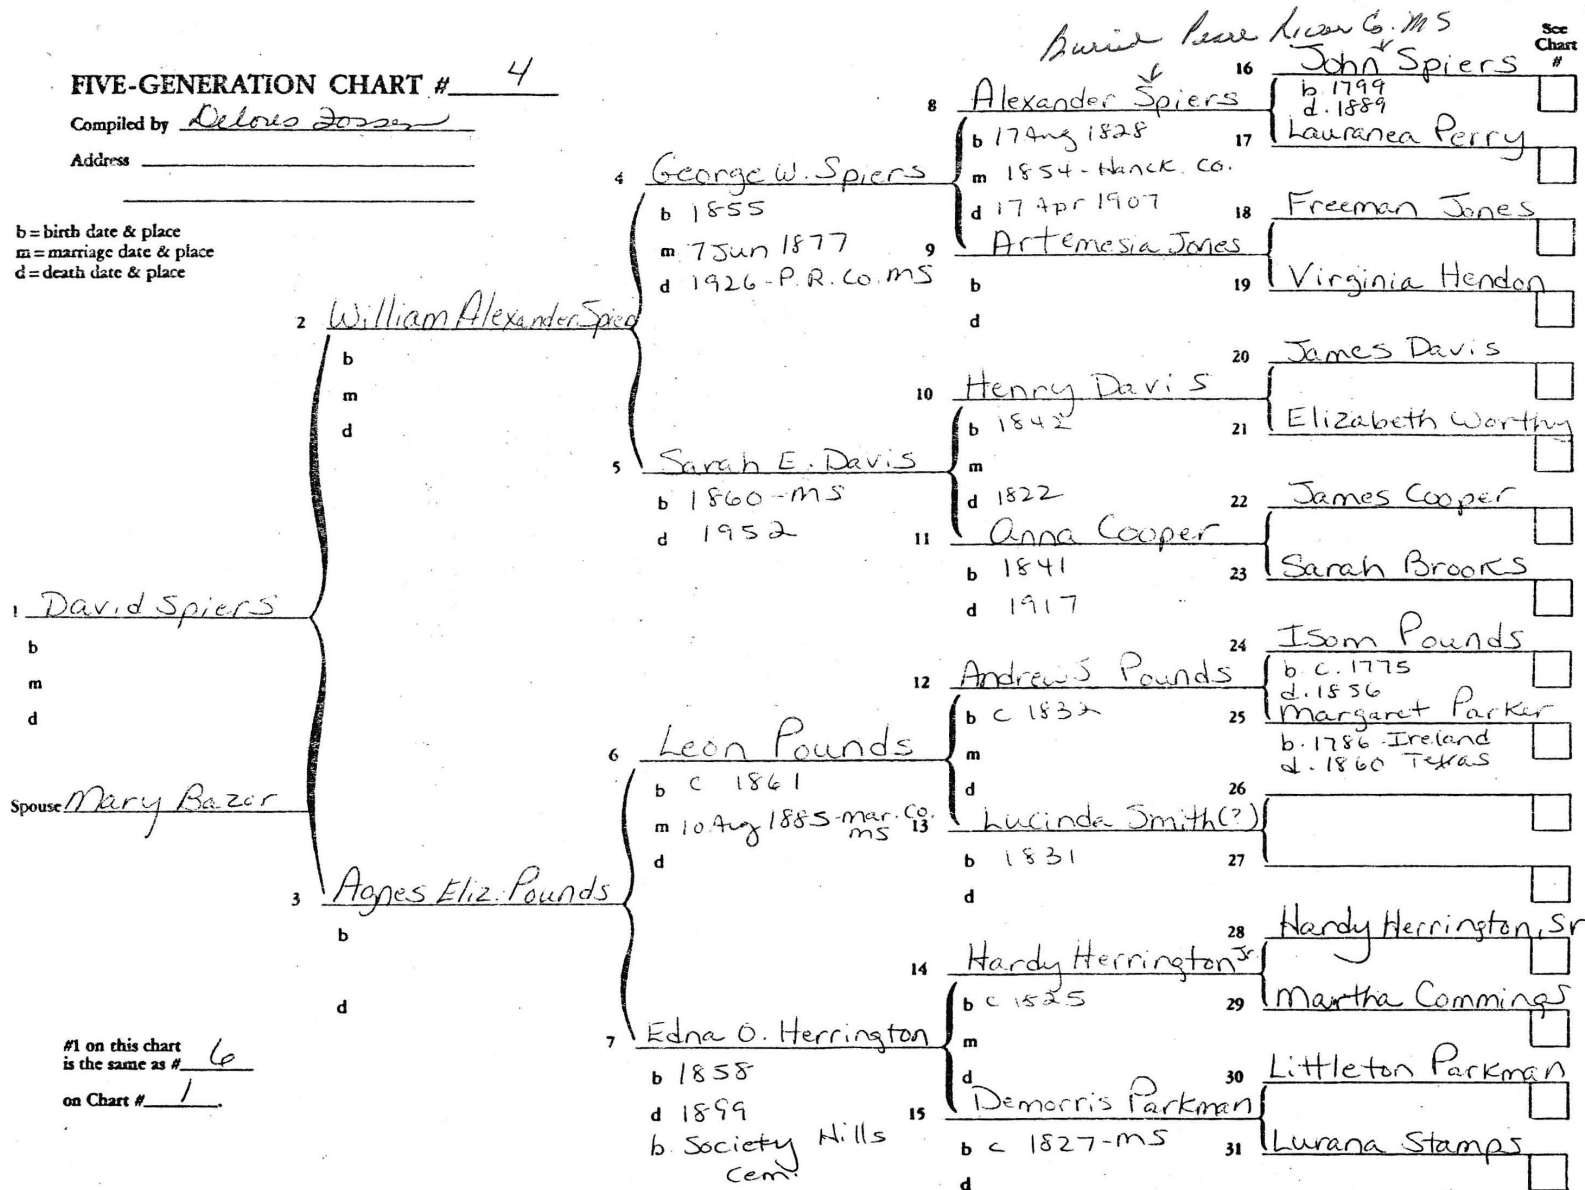 Buried Pearl River Co. MS
See
Chart
#
FIVE-GENERATION CHART # 4
Compiled by Delores
Address
b = birth date & place
m = marriage date & place
d = death date & place
1 David Spiers
b
m
d
Spouse Mary Bazor
#1 on this chart
is the same as # 6
on Chart # 1.
2 William Alexander Spiers
b
m
d
3 Agnes Eliz. Pounds
b
d
4 George W. Spiers
b 1855
m 7 Jun 1877
d 1926 - P.R. Co. MS
5 Sarah E. Davis
b 1860 - MS
d 1952
6 Leon Pounds
b c 1861
m 10 Aug 1885 - Mar. Co.
MS
d
7 Edna O. Herrington
b 1858
d 1899
b. Society Hills
Cem.
8 Alexander Spiers
b 17 Aug 1828
m 1854 - Hanck. Co.
d 17 Apr 1907
9 Artemesia Jones
b
d
10 Henry Davis
b 1842
m
d 1822
11 Anna Cooper
b 1841
d 1917
12 Andrew J Pounds
b c 1832
m
d
13 Lucinda Smith (?)
b 1831
d
14 Hardy Herrington Jr.
b c 1825
m
d
15 Demorris Parkman
b c 1827 - MS
d
16 John Spiers
b. 1799
d. 1889
17 Lauranea Perry
18 Freeman Jones
19 Virginia Hendon
20 James Davis
21 Elizabeth Worthy
22 James Cooper
23 Sarah Brooks
24 Isom Pounds
b. c. 1775
d. 1856
25 Margaret Parker
b. 1786 - Ireland
d. 1860 Texas
26
27
28 Hardy Herrington, Sr
29 Martha Commings
30 Littleton Parkman
31 Lurana Stamps